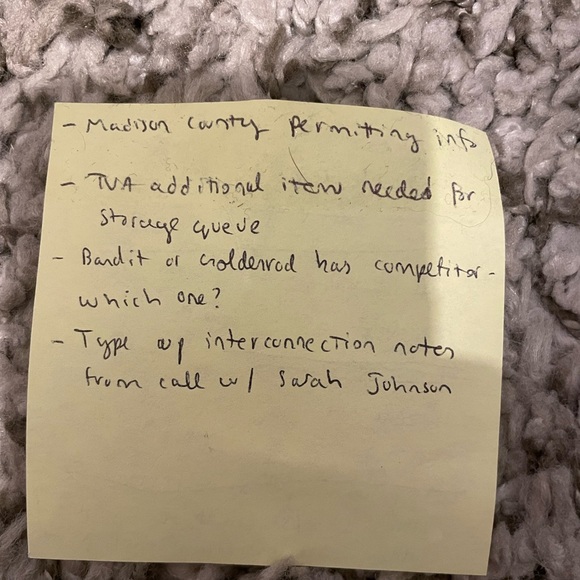 - Madison County Permitting info
- TVA additional item needed for
storage queue
- Bandit or Goldenrod has competitor -
which one?
- Type up interconnection notes
from call w/ Sarah Johnson